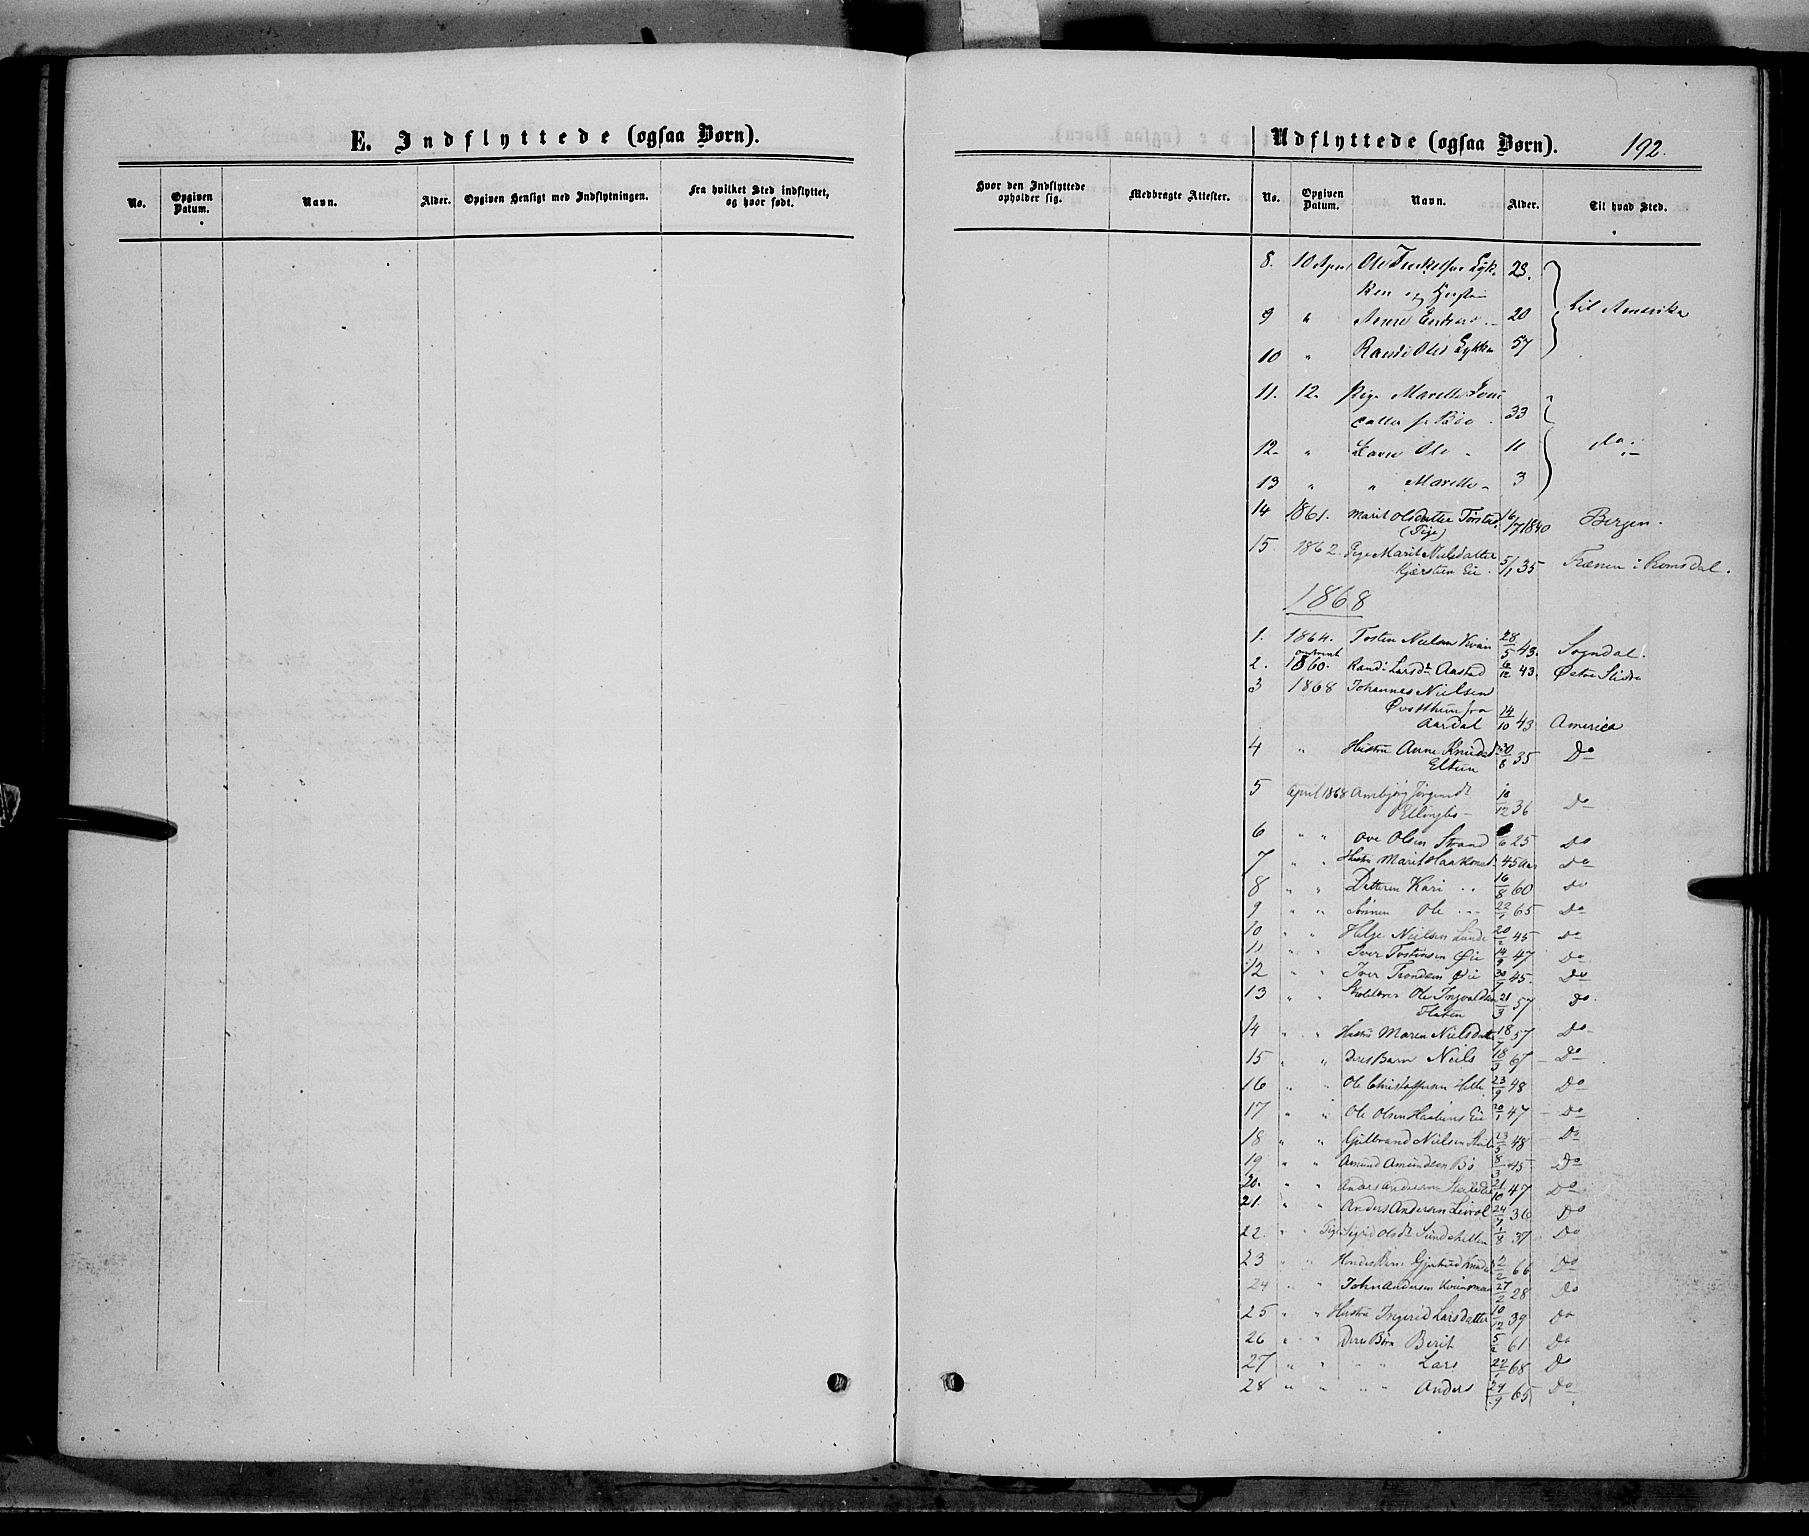 E. Indflyttede (ogsaa Børn).
No. Opgiven Datum. Navn. Alder. Opgiven Hensigt med Indflytningen. Fra hvilket Sted indflyttet, og hvor født.
Udflyttede (ogsaa Børn). 192.
Hvor den Indflyttede opholder sig. Medbragte Attester. No. Opgiven Datum. Navn. Alder. Til hvad Sted.
8. 10 April Ole 23.
ken og
9 " Anne 20 til Amerika
10 " Randi Olsd 57
11. 12. Pige Marthe
datter fr Bøe 33
12. " Ole 11 do.
13 " " Marthe 3
14 1861. Marit Olsdatter 16/7 1840 Bergen.
(Pige)
15. 1862. Pige Marit Nielsdatter
Kjørstien Eie. 5/1 35 Frænen i Romsdal.
1868
1. 1864. Tosten Nielsen Kvien 28/5 43. Sogndal.
omtrent
2. 1860. Randi Larsdtr Aastad 6/12 43. Østre Slidre
3 1868 Johannes Nielsen
fra
Aardal 14/10 43 America
4 " Hustru Anne Knudsd.
Eltun 20/8 35 Do
5 April 1868 Ambjørg Jørgensdt
Ellingbo 10/12 36 Do
6 " " Ove Olsen Strand 6 25 Do
7 " " Hustru Marit Haakonsd. 45 Aar Do
8 " " Datteren Kari " 16/8 60 Do
9 " " Sønnen Ole " 22/1 65 Do
10 " " Helge Nielsen Lunde 20/2 45 Do
11 " " Iver Tostensen Øie 14/9 47 Do
12 " " Iver Trondsen Øie 30/7 45. Do
13 " " Skolelærer Ole Ingvaldsen
Flaten 21/3 57 Do.
14 " " Hustru Maren Nielsdatter 18/7 57 Do
15 " " Deres Barn Neils 18/3 67 Do
16 " " Ole Christophersen Helle 23/9 48 Do
17 " " Ole Olsen Haahens Eie 20/1 47 Do
18 " " Gulbrand Nielsen 23/5 48 Do
19 " " Amund Amundsen Bø 8/3 45 Do
20. " " Anders Andersen 21/10 47 Do
21. " " Anders Andersen Leirol 24/7 36 Do
22. " " Pige Sigrid Olsdt 1/8 37 Do
23 " " Hendes Barn Gjertrud Knudsd 2/2 66 Do
24 " " John Andersen 27/2 28 Do
25 " " Hustru Ingerid Larsdatter 10/12 39 Do
26 " " Deres Børn Berit 5 61 Do
27 " " " " Lars 22/1 68 Do
28 " " " " Anders 29/9 65 Do